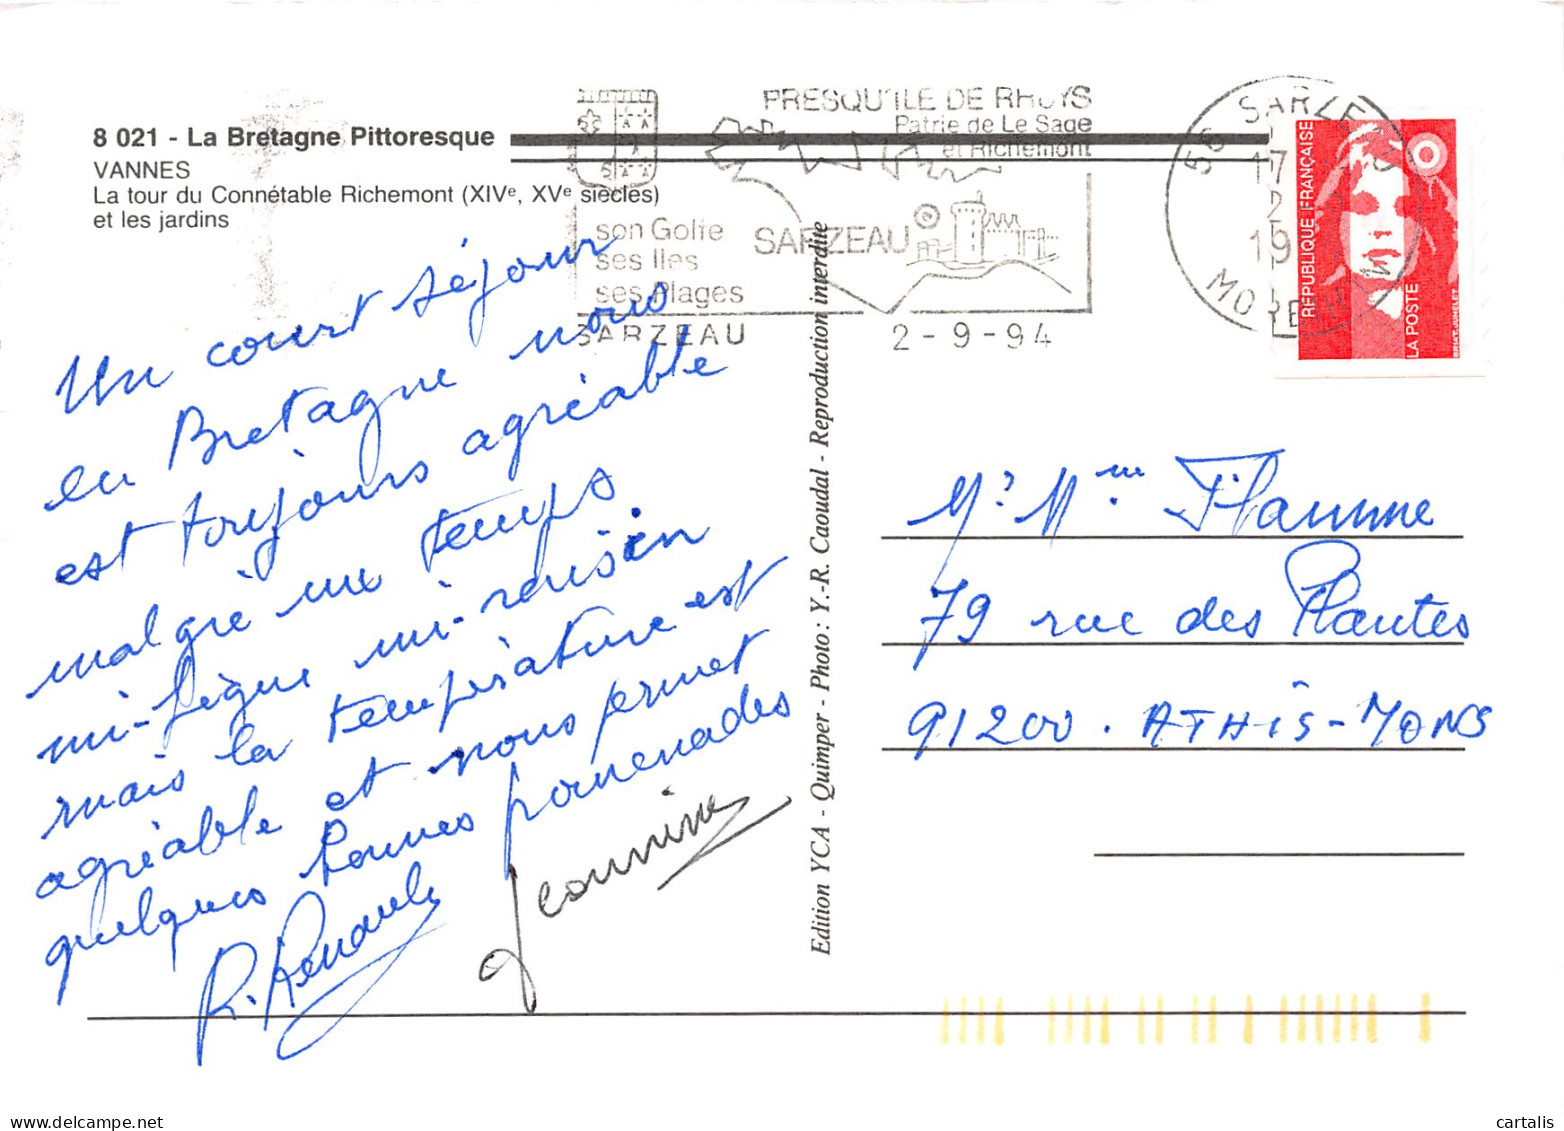 8 021 - La Bretagne Pittoresque
VANNES
La tour du Connétable Richemont (XIVe, XVe siècles)
et les jardins
PRESQU'ILE DE RHUYS
Patrie de Le Sage
et Richemont
son Golfe
ses Iles
ses Plages
SARZEAU
SARZEAU
2-9-94
56 SARZEAU
17
2
19
MORBIHAN
RÉPUBLIQUE FRANÇAISE
LA POSTE
Un court séjour
en Bretagne nous
est toujours agréable
malgré un temps
mi-figue mi-raisin
mais la température est
agréable et nous permet
quelques bonnes promenades
R. Renault
Jeannine
Edition YCA - Quimper - Photo : Y.-R. Caoudal - Reproduction interdite
Mr Mme Flamme
79 rue des Plantes
91200. ATHIS-MONS